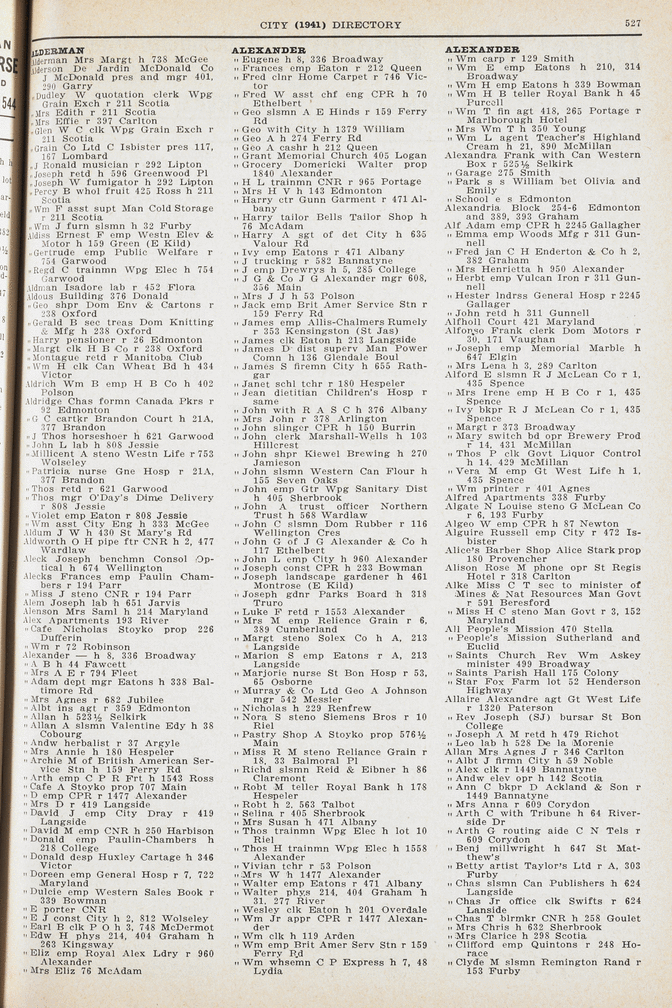 CITY (1941) DIRECTORY
527
ALDERMAN
Alderman Mrs Margt h 738 McGee
Alderson De Jardin McDonald Co
J McDonald pres and mgr 401,
290 Garry
„ Dudley W quotation clerk Wpg
Grain Exch r 211 Scotia
„ Mrs Edith r 211 Scotia
„ Mrs Effie r 397 Carlton
„ Glen W C clk Wpg Grain Exch r
211 Scotia
„ Grain Co Ltd C Isbister pres 117,
167 Lombard
„ J Ronald musician r 292 Lipton
„ Joseph retd h 596 Greenwood Pl
„ Joseph W fumigator h 292 Lipton
„ Percy B whol fruit 425 Ross h 211
Scotia
„ Wm F asst supt Man Cold Storage
r 211 Scotia
„ Wm J furn slsmn h 32 Furby
Aldiss Ernest F emp Westn Elev &
Motor h 159 Green (E Kild)
„ Gertrude emp Public Welfare r
754 Garwood
„ Regd C trainmn Wpg Elec h 754
Garwood
Aldman Isadore lab r 452 Flora
Aldous Building 376 Donald
„ Geo shpr Dom Env & Cartons r
238 Oxford
„ Gerald B sec treas Dom Knitting
& Mfg h 238 Oxford
„ Harry pensioner r 26 Edmonton
„ Margt clk H B Co r 238 Oxford
„ Montague retd r Manitoba Club
„ Wm H clk Can Wheat Bd h 434
Victor
Aldrich Wm B emp H B Co h 402
Polson
Aldridge Chas formn Canada Pkrs r
92 Edmonton
„ G C cartkr Brandon Court h 21A,
377 Brandon
„ J Thos horseshoer h 621 Garwood
„ John L lab h 808 Jessie
„ Millicent A steno Westn Life r 753
Wolseley
„ Patricia nurse Gne Hosp r 21A,
377 Brandon
„ Thos retd r 621 Garwood
„ Thos mgr O'Day's Dime Delivery
r 808 Jessie
„ Violet emp Eaton r 808 Jessie
„ Wm asst City Eng h 333 McGee
Aldum J W h 430 St Mary's Rd
Aldworth O H pipe ftr CNR h 2, 477
Wardlaw
Aleck Joseph benchmn Consol Op-
tical h 674 Wellington
Alecks Frances emp Paulin Cham-
bers r 194 Parr
„ Miss J steno CNR r 194 Parr
Alem Joseph lab h 651 Jarvis
Alenson Mrs Saml h 214 Maryland
Alex Apartments 193 River
„ Cafe Nicholas Stoyko prop 226
Dufferin
„ Wm r 72 Robinson
Alexander — h 8, 336 Broadway
„ A B h 44 Fawcett
„ Mrs A E r 794 Fleet
„ Adam dept mgr Eatons h 338 Bal-
timore Rd
„ Mrs Agnes r 682 Jubilee
„ Albt ins agt r 359 Edmonton
„ Allan h 523½ Selkirk
„ Allan A slsmn Valentine Edy h 38
Cobourg
„ Andw herbalist r 37 Argyle
„ Mrs Annie h 180 Hespeler
„ Archie M of British American Ser-
vice Stn h 159 Ferry Rd
„ Arth emp C P R Frt h 1543 Ross
„ Cafe A Stoyko prop 707 Main
„ D emp CPR r 1477 Alexander
„ Mrs D r 419 Langside
„ David J emp City Dray r 419
Langside
„ David M emp CNR h 250 Harbison
„ Donald emp Paulin-Chambers h
218 College
„ Donald desp Huxley Cartage h 346
Victor
„ Doreen emp General Hosp r 7, 722
Maryland
„ Dulcie emp Western Sales Book r
339 Bowman
„ E porter CNR
„ E J const City h 2, 812 Wolseley
„ Earl B clk P O h 3, 748 McDermot
„ Edw H phys 214, 404 Graham h
263 Kingsway
„ Eliz emp Royal Alex Ldry r 960
Alexander
„ Mrs Eliz 76 McAdam
ALEXANDER
„ Eugene h 8, 336 Broadway
„ Frances emp Eaton r 212 Queen
„ Fred clnr Home Carpet r 746 Vic-
tor
„ Fred W asst chf eng CPR h 70
Ethelbert
„ Geo slsmn A E Hinds r 159 Ferry
Rd
„ Geo with City h 1379 William
„ Geo A h 274 Ferry Rd
„ Geo A cashr h 212 Queen
„ Grant Memorial Church 405 Logan
„ Grocery Domericki Walter prop
1840 Alexander
„ H L trainmn CNR r 965 Portage
„ Mrs H V h 143 Edmonton
„ Harry ctr Gunn Garment r 471 Al-
bany
„ Harry tailor Bells Tailor Shop h
76 McAdam
„ Harry A sgt of det City h 635
Valour Rd
„ Ivy emp Eatons r 471 Albany
„ J trucking r 582 Bannatyne
„ J emp Drewrys h 5, 285 College
„ J G & Co J G Alexander mgr 608,
356 Main
„ Mrs J J h 53 Polson
„ Jack emp Brit Amer Service Stn r
159 Ferry Rd
„ James emp Allis-Chalmers Rumely
r 353 Kensington (St Jas)
„ James clk Eaton h 213 Langside
„ James D dist superv Man Power
Comn h 136 Glendale Boul
„ James S firemn City h 655 Rath-
gar
„ Janet schl tchr r 180 Hespeler
„ Jean dietitian Children's Hosp r
same
„ John with R A S C h 376 Albany
„ Mrs John r 378 Arlington
„ John slingr CPR h 150 Burrin
„ John clerk Marshall-Wells h 103
Hillcrest
„ John shpr Kiewel Brewing h 270
Jamieson
„ John slsmn Western Can Flour h
155 Seven Oaks
„ John emp Gtr Wpg Sanitary Dist
h 405 Sherbrook
„ John A trust officer Northern
Trust h 568 Wardlaw
„ John C slsmn Dom Rubber r 116
Wellington Cres
„ John G of J G Alexander & Co h
117 Ethelbert
„ John L emp City h 960 Alexander
„ Joseph const CPR h 233 Bowman
„ Joseph landscape gardener h 461
Montrose (E Kild)
„ Joseph gdnr Parks Board h 318
Truro
„ Luke F retd r 1553 Alexander
„ Mrs M emp Relience Grain r 6,
389 Cumberland
„ Margt steno Solex Co h A, 213
Langside
„ Marion S emp Eatons r A, 213
Langside
„ Marjorie nurse St Bon Hosp r 53,
65 Osborne
„ Murray & Co Ltd Geo A Johnson
mgr 542 Messier
„ Nicholas h 229 Renfrew
„ Nora S steno Siemens Bros r 10
Riel
„ Pastry Shop A Stoyko prop 576½
Main
„ Miss R M steno Reliance Grain r
18, 33 Balmoral Pl
„ Richd slsmn Reid & Eibner h 86
Claremont
„ Robt M teller Royal Bank h 178
Hespeler
„ Robt h 2, 563 Talbot
„ Selina r 405 Sherbrook
„ Mrs Susan h 471 Albany
„ Thos trainmn Wpg Elec h lot 10
Riel
„ Thos H trainmn Wpg Elec h 1558
Alexander
„ Vivian tchr r 53 Polson
„ Mrs W h 1477 Alexander
„ Walter emp Eatons r 471 Albany
„ Walter phys 214, 404 Graham h
31, 277 River
„ Wesley clk Eaton h 201 Overdale
„ Wm Jr appr CPR r 1477 Alexan-
der
„ Wm clk h 119 Arden
„ Wm emp Brit Amer Serv Stn r 159
Ferry Rd
„ Wm whsemn C P Express h 7, 48
Lydia
ALEXANDER
„ Wm carp r 129 Smith
„ Wm E emp Eatons h 210, 314
Broadway
„ Wm H emp Eatons h 339 Bowman
„ Wm H B teller Royal Bank h 45
Purcell
„ Wm T fin agt 418, 265 Portage r
Marlborough Hotel
„ Mrs Wm T h 350 Young
„ Wm L agent Teacher's Highland
Cream h 21, 890 McMillan
Alexandra Frank with Can Western
Box r 525½ Selkirk
„ Garage 275 Smith
„ Park s s William bet Olivia and
Emily
„ School e s Edmonton
Alexandria Block 254-6 Edmonton
and 389, 393 Graham
Alf Adam emp CPR h 2245 Gallagher
„ Emma emp Woods Mfg r 311 Gun-
nell
„ Fred Jan C H Enderton & Co h 2,
382 Graham
„ Mrs Henrietta h 950 Alexander
„ Herbt emp Vulcan Iron r 311 Gun-
nell
„ Hester lndrss General Hosp r 2245
Gallager
„ John retd h 311 Gunnell
Alfholl Court 421 Maryland
Alforso Frank clerk Dom Motors r
30, 171 Vaughan
„ Joseph emp Memorial Marble h
647 Elgin
„ Mrs Lena h 3, 289 Carlton
Alford E slsmn R J McLean Co r 1,
435 Spence
„ Mrs Irene emp H B Co r 1, 435
Spence
„ Ivy bkpr R J McLean Co r 1, 435
Spence
„ Margt r 373 Broadway
„ Mary switch bd opr Brewery Prod
r 14, 431 McMillan
„ Thos P clk Govt Liquor Control
h 14, 429 McMillan
„ Vera M emp Gt West Life h 1,
435 Spence
„ Wm printer r 401 Agnes
Alfred Apartments 338 Furby
Algate N Louise steno G McLean Co
r 6, 193 Furby
Algeo W emp CPR h 87 Newton
Alguire Russell emp City r 472 Is-
bister
Alice's Barber Shop Alice Stark prop
180 Provencher
Alison Rose M phone opr St Regis
Hotel r 318 Carlton
Alke Miss C T sec to minister of
Mines & Nat Resources Man Govt
r 591 Beresford
„ Miss H C steno Man Govt r 3, 152
Maryland
All People's Mission 470 Stella
„ People's Mission Sutherland and
Euclid
„ Saints Church Rev Wm Askey
minister 499 Broadway
„ Saints Parish Hall 175 Colony
„ Star Fox Farm lot 52 Henderson
Highway
Allaire Alexandre agt Gt West Life
r 1320 Paterson
„ Rev Joseph (SJ) bursar St Bon
College
„ Joseph A M retd h 479 Richot
„ Leo lab h 528 De la Morenie
Allan Mrs Agnes J r 346 Carlton
„ Albt J firmn City h 59 Noble
„ Alex clk r 1449 Bannatyne
„ Andw elev opr h 142 Scotia
„ Ann C bkpr D Ackland & Son r
1449 Bannatyne
„ Mrs Anna r 609 Corydon
„ Arth C with Tribune h 64 River-
side Dr
„ Arth G routing aide C N Tels r
609 Corydon
„ Benj millwright h 647 St Mat-
thew's
„ Betty artist Taylor's Ltd r A, 303
Furby
„ Chas slsmn Can Publishers h 624
Langside
„ Chas Jr office clk Swifts r 624
Lanside
„ Chas T blrmkr CNR h 258 Goulet
„ Mrs Chris h 632 Sherbrook
„ Mrs Clarice h 298 Scotia
„ Clifford emp Quintons r 248 Ho-
race
„ Clyde M slsmn Remington Rand r
153 Furby